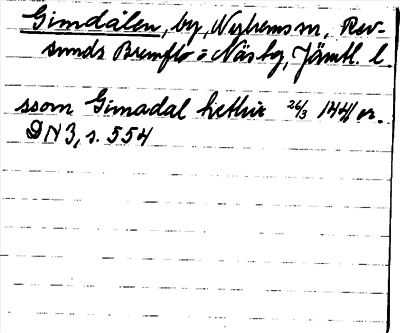 Gimdålen, by, Nyhems sn, Rev-
sunds Bremflo o Näs tg, Jämtl. l.
ssom Gimadal hether 26/3 1441 or.
DN 3, s. 554